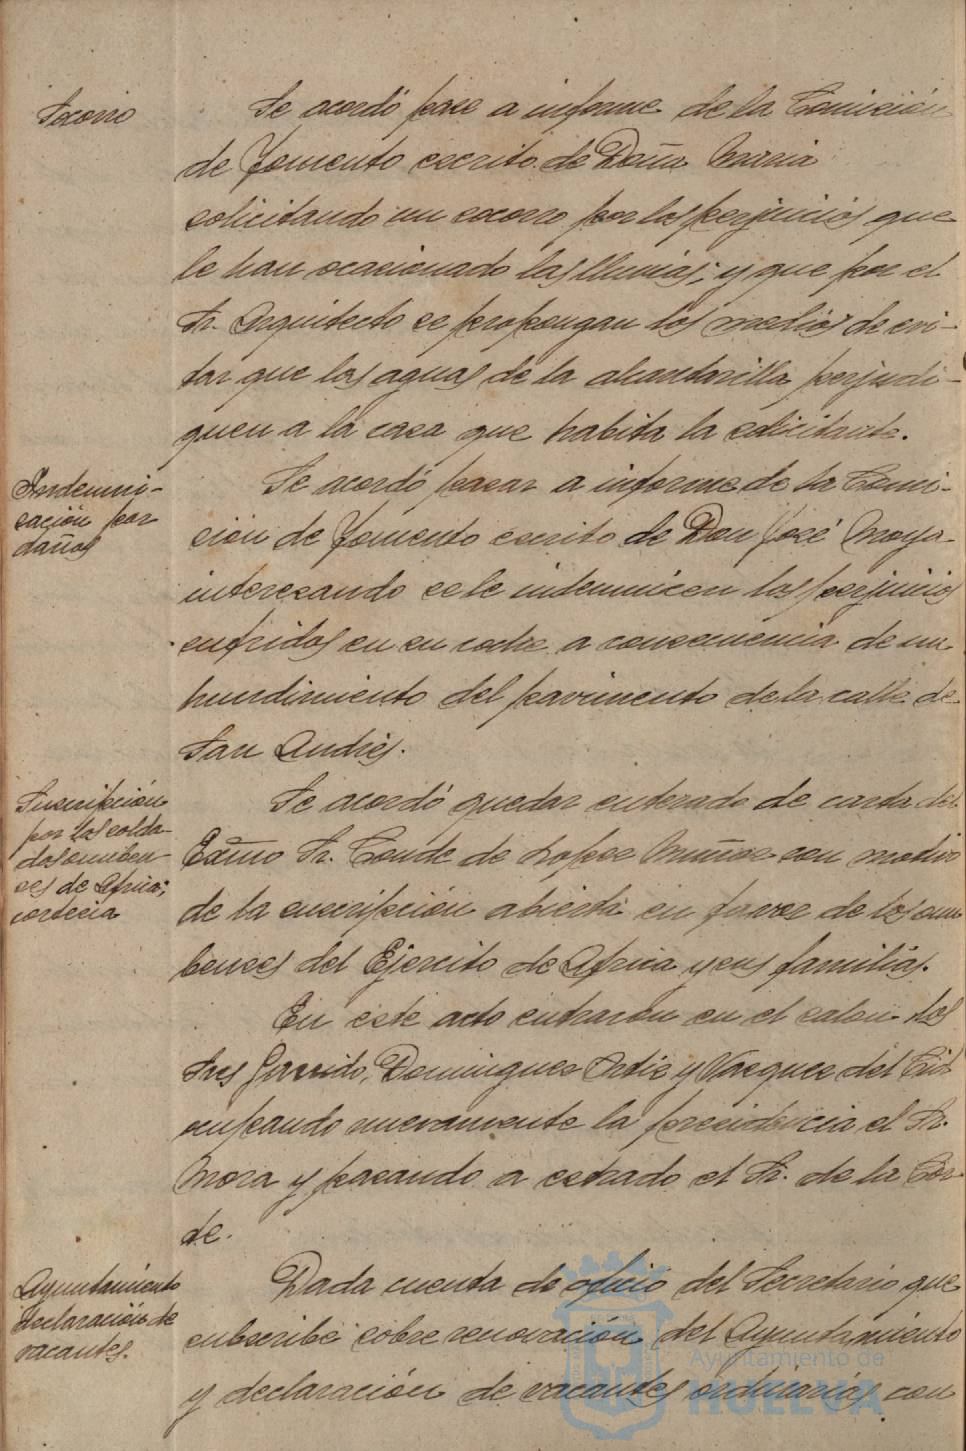 Socorro
Se acordó pase a informe de la Comisión
de Fomento escrito de Doña María
solicitando un socorro por los perjuicios que
le han ocasionado las lluvias; y que por el
Sr. Arquitecto se propongan los medios de evi-
tar que las aguas de la alcantarilla perjudi-
quen a la casa que habita la solicitante.
Indemni-
zación por
daños
Se acordó pasar a informe de la Comi-
sión de Fomento escrito de Don José Moya
interesando se le indemnicen los perjuicios
sufridos en su coche a consecuencia de un
hundimiento del pavimento de la calle de
San Andrés.
Suscripción
por los solda-
dos onuben-
ses de Africa;
cortesía
Se acordó quedar enterado de carta del
Exc͠mo Sr. Conde de López Muñoz con motivo
de la suscripción abierta en favor de los onu
benses del Ejercito de Africa y sus familias.
En este acto entraron en el salon los
Sres Garrido, Dominguez Ortiz y Vazquez del Cid
ocupando nuevamente la presidencia el Sr.
Mora y pasando a estrado el Sr. de la Cor-
te.
Ayuntamiento
Declaración de
vacantes.
Dada cuenta de oficio del Secretario que
subscribe sobre renovación del Ayuntamiento
y declaración de vacantes ordinarias con
Ayuntamiento de
HUELVA